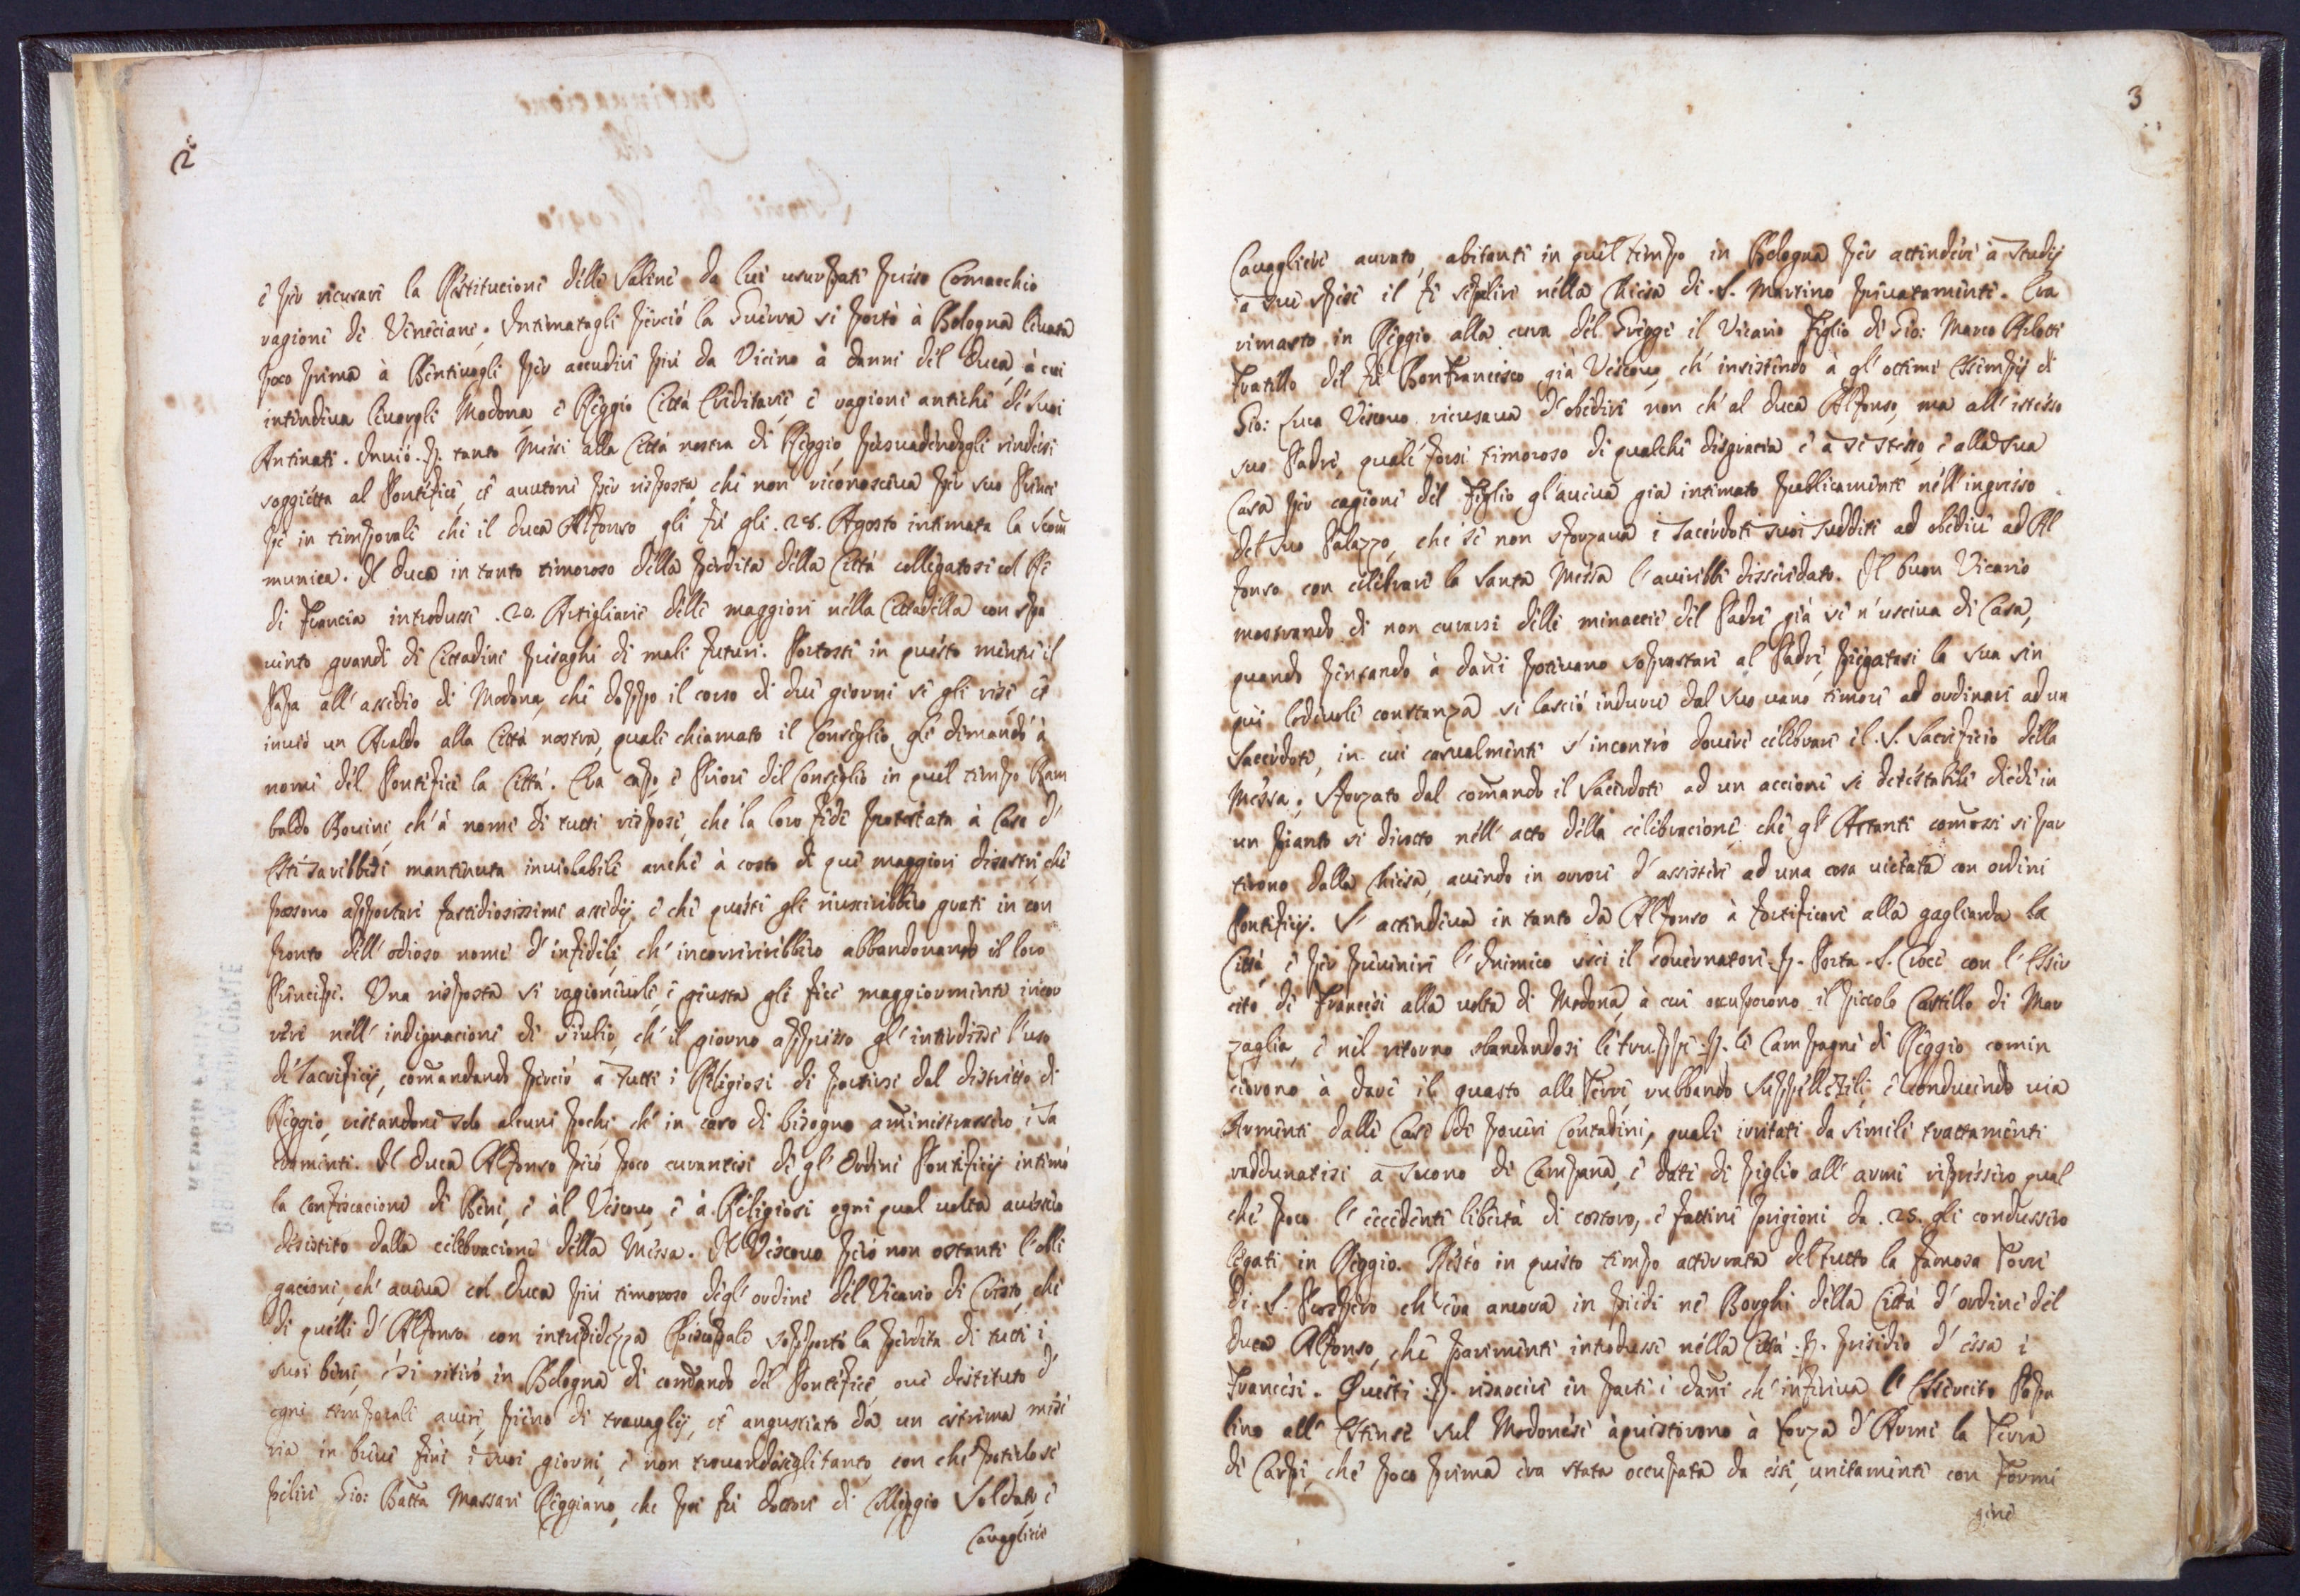 2
è per ricusare la Restitucione delle Saline da lui usurpate presso Comacchio
ragione de Veneciani. Intimatagli perciò la Guerra si portò à Bologna levata
poco prima à Bentivogli per accudire più da Vicino à danni del Duca, à cui
intendeva levargli Modona, e Reggio Città Ereditarie, e ragioni antiche de' suoi
Antenati. Inuiò p. tanto Messi alla Città nostra di Reggio persuadendogli rendersi
soggietta al Pontefice, et auutone per risposta, che non riconosceua per suo Princi
pe in temporale che il Duca Alfonso gli fù gli .28. Agosto intimata la scom̃
munica. Il Duca in tanto timoroso della perdita della Città collegatosi col Rè
di Francia introdusse .20. Artigliarie delle maggiori nella Cittadella con spa
uento grande de Cittadini presaghi di mali futuri. Portossi in questo mentre il
Papa all' assedio di Modona, che doppo il corso di due giorni se gli rese, et
inuiò un Araldo alla Città nostra, quale chiamato il Consiglio, gli dimandò à
nome del Pontefice la Città. Era capo, e Priore del Consiglio in quel tempo Ram
baldo Bouini, ch' à nome di tutti rispose, che la loro fede protestata à Casa d'
Este sarebbesi mantenuta inuiolabile anche à costo di que maggiori disastri, che
possono apportare fastidiosissimi assedij, e che questi gli riuscirebbero grati in con
fronto dell' odioso nome d' infedeli, ch' incorrerebbero abbandonando il loro
Principe. Una risposta si ragioneuole, e giusta gli fece maggiormente incor
rere nell' indignacione di Giulio, ch' il giorno appresso gl' interdisse l' uso
de' Sacrificij, comandando perciò a tutti i Religiosi di partirsi dal distretto di
Reggio, restandone solo alcuni pochi, ch' in caso di bisogno aministrassero i Sa
cramenti. Il Duca Alfonso però poco curantesi di gl' Ordini Pontificij intimò
la confiscacione di Beni, e al Vescouo, e à Religiosi ogni qual volta auessero
desistito dalla celebracione della Messa. Il Vescouo però non ostante l' obli
gacione, ch' aueua col Duca più timoroso degl' ordini del Vicario di Cristo, che
di quelli d' Alfonso con intrepidezza Episcopale sopportò la perdita di tutti i
suoi beni, e si ritirò in Bologna di comando del Pontefice, oue destituto d'
ogni temporale auere, pieno di trauaglij, et angustiato da un estrema mise
ria in breue finì i suoi giorni, e non trouandosegli tanto, con che poterlo se
pelire Gio: Batta Massari Reggiano, che poi fù dottore di Colleggio Soldato, e
Cavagliere
3
Cauagliere aurato, abitante in quel tempo in Bologna per attendere à studij
à sue spese il fè sepelire nella Chiesa di .S. Martino priuatamente. Era
rimasto in Reggio alla cura del Gregge il Vicario Figlio di Gio: Marco Arlotti
Fratello del fù Bonfrancesco già Vescouo, ch' insistendo à gl' ottimi essempij di
Gio: Luca Vescouo ricusaua d' obedire non ch' al Duca Alfonso, ma all' istesso
suo Padre, quale forsi timoroso di qualche disgracia e à se stesso, e alla sua
Casa per cagione del Figlio gl' aueua già intimato publicamente nell' ingresso
del suo Palazzo, che se non sforzaua i Sacerdoti suoi sudditi ad obedire ad Al
fonso con celebrare la Santa Messa l' auerebbe disseredato. Il buon Vicario
mostrando di non curarsi delle minaccie del Padre già se n' usciua di Casa,
quando pensando à danni poteuano soprastare al Padre, piegatasi la sua sin
qui lodeuole constanza si lasciò indurre dal suo uano timore ad ordinare ad un
Sacerdote, in cui casualmente s' incontrò douere celebrare il .S. Sacrificio della
Messa. Sforzato dal comando il Sacerdote ad un accione si detestabile diede in
un pianto si dirotto nell' atto della celebracione, che gl' Astanti comossi si par
tirono dalla Chiesa, auendo in orrore d' assistere ad una cosa uietata con ordini
Pontificij. S' attendeua in tanto da Alfonso à fortificare alla gagliarda la
Città, e per preuenire l' Inimico uscì il Gouernatore .p. Porta .S. Croce con l' Esser
cito di Francesi alla uolta di Modona, à cui occuporono il piccolo Castello di Mar
zaglia, e nel ritorno sbandandosi le truppe .p. le Campagne di Reggio comin
ciorono à dare il guasto alle Terre, rubbando Suppellettili, e conducendo uia
Armenti dalle Case de poueri Contadini, quali irritati da simili trattamenti
raddunatisi a suono di Campana, e dati di piglio all' armi ripressero qual
che poco l' eccedente libertà di costoro, e fattine prigioni da .25. gli condussero
legati in Reggio. Restò in questo tempo atterrata del tutto la famosa Torre
di .S. Prospero ch' era ancora in piedi ne Borghi della Città d' ordine del
Duca Alfonso, che parimenti introdusse nella Città .p. presidio d' essa i
Francesi. Questi .p. risarcire in parte i danni ch' inferiua l' Essercito Papa
lino all' Estense sul Modonese aquistorono à forza d' Armi la Terra
di Carpi, che poco prima era stata occupata da essi, unitamente con Formi
gine